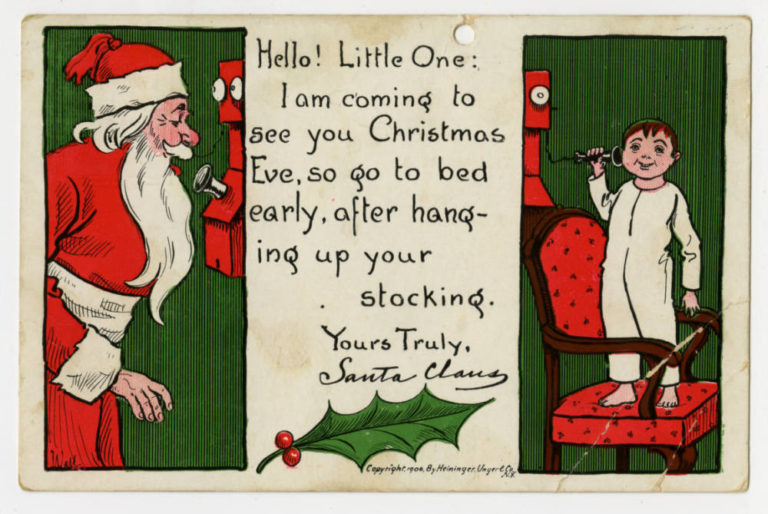 Hello! Little One:
I am coming to
see you Christmas
Eve, so go to bed
early, after hang-
ing up your
stocking.
Yours Truly,
Santa Claus
Copyright, 1906, By Heininger, Unger & Co.
N.Y.